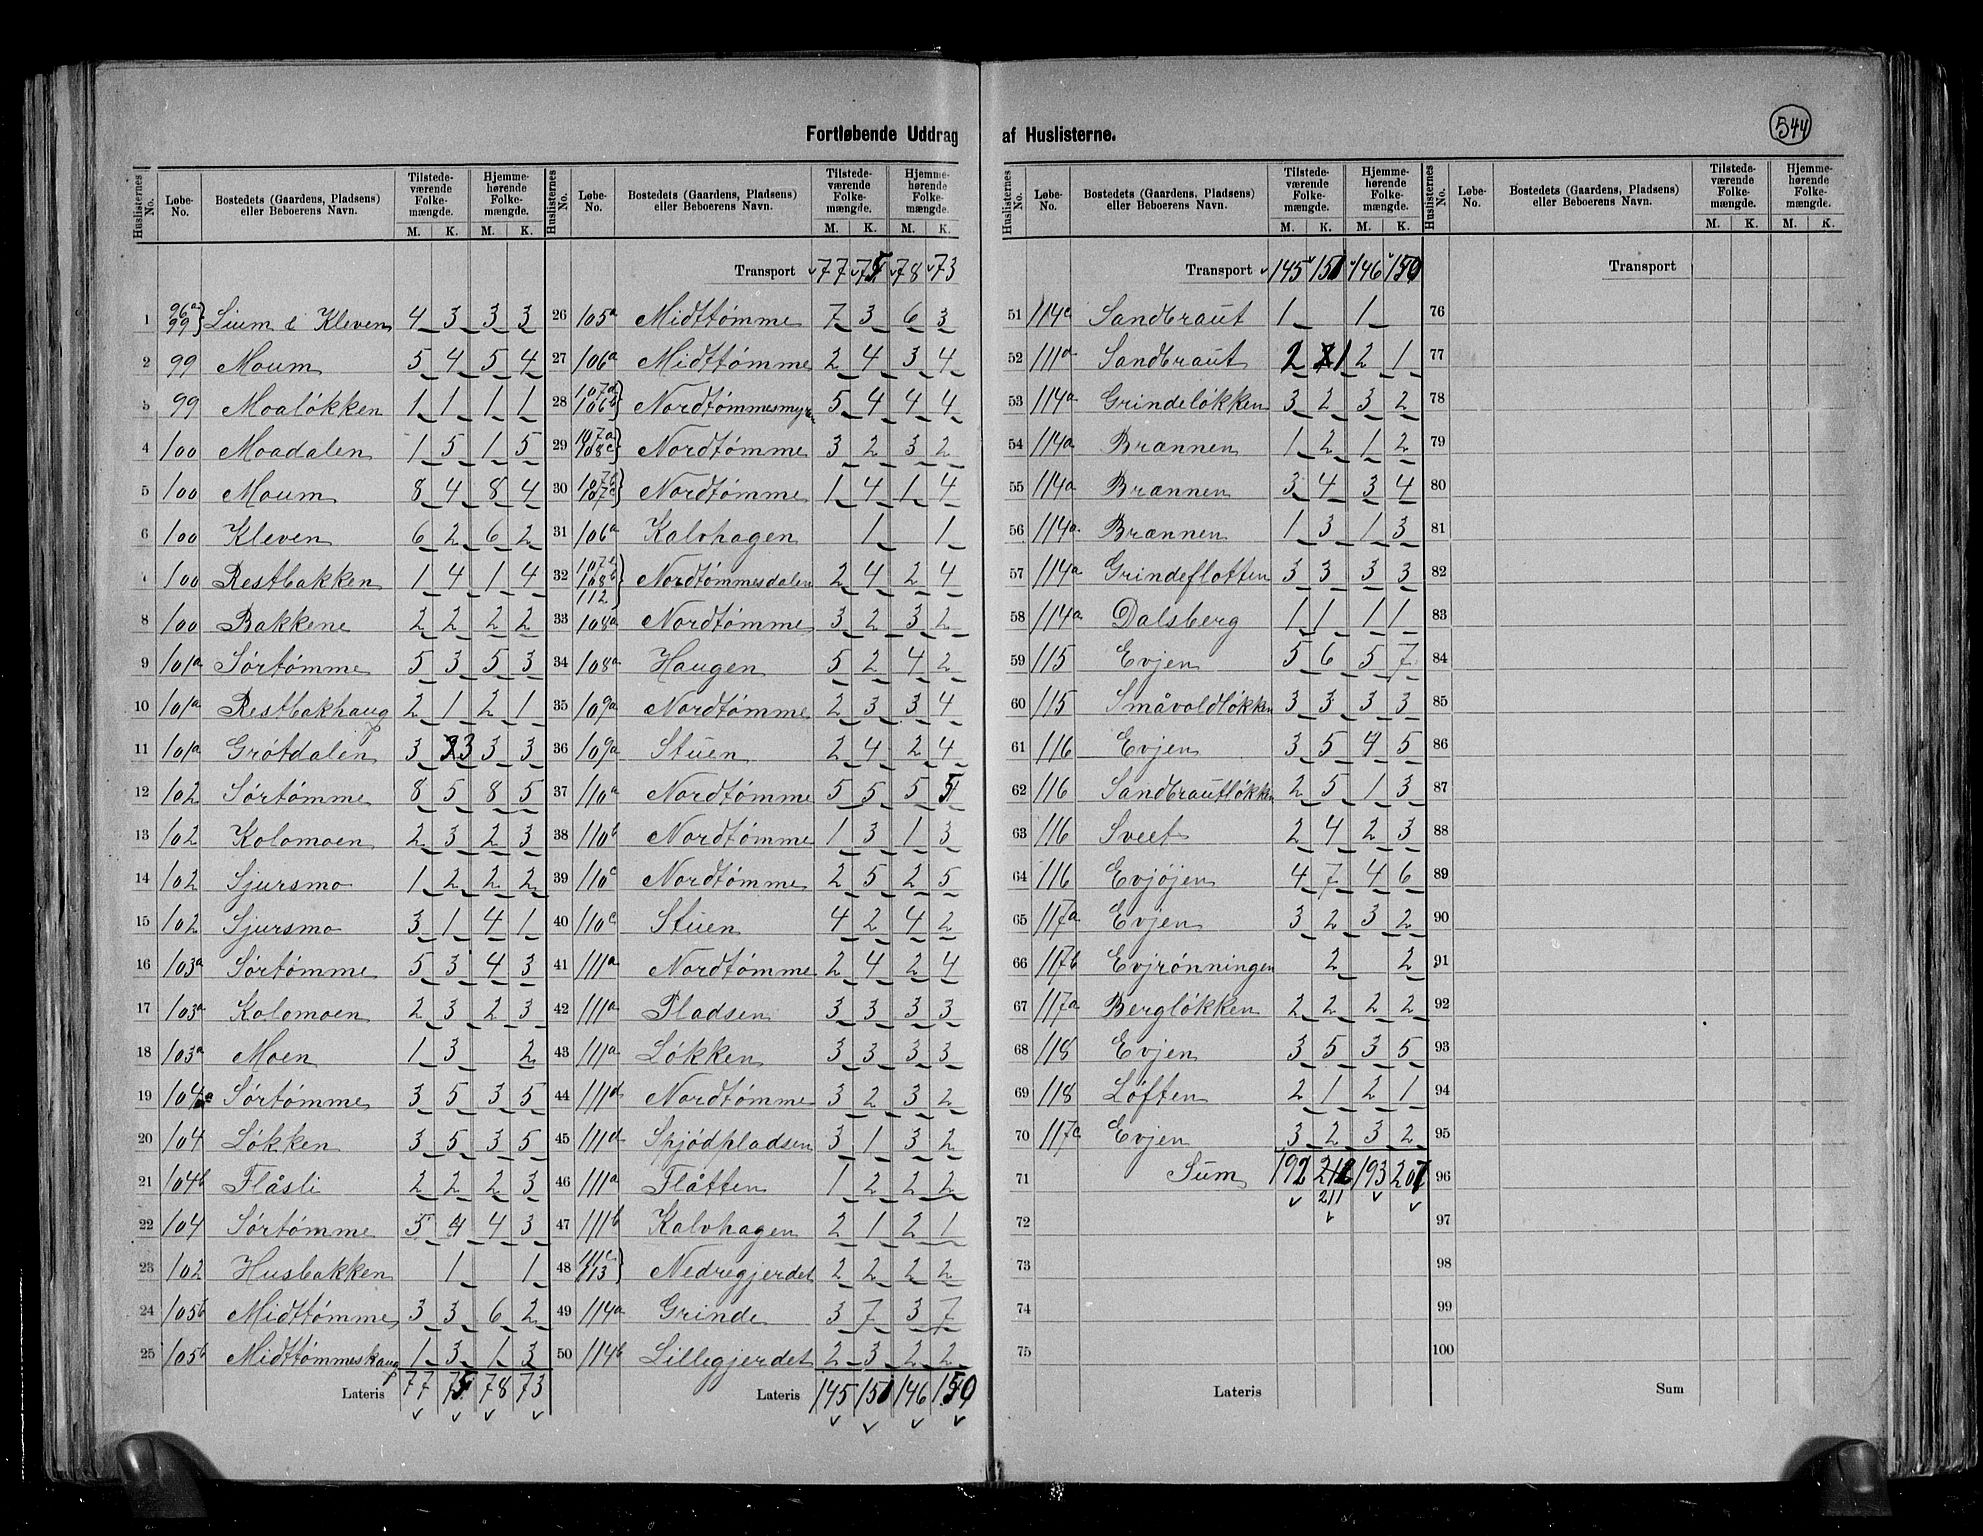 544
Fortløbende Uddrag af Huslisterne.
Huslisternes No. | Løbe-No. | Bostedets (Gaardens, Pladsens) eller Beboerens Navn. | Tilstede-værende Folke-mængde. M. K. | Hjemme-hørende Folke-mængde. M. K.
1 | 96a 99 | Lium & Kleven | 4 | 3 | 3 | 3
2 | 99 | Moum | 5 | 4 | 5 | 4
3 | 99 | Moaløkken | 1 | 1 | 1 | 1
4 | 100 | Moadalen | 1 | 5 | 1 | 5
5 | 100 | Moum | 8 | 4 | 8 | 4
6 | 100 | Kleven | 6 | 2 | 6 | 2
7 | 100 | Restbakken | 1 | 4 | 1 | 4
8 | 100 | Bakkene | 2 | 2 | 2 | 2
9 | 101a | Sørtømme | 5 | 3 | 5 | 3
10 | 101a | Restbakhaug | 2 | 1 | 2 | 1
11 | 101a | Grøtdalen | 3 | 3 | 3 | 3
12 | 102 | Sørtømme | 8 | 5 | 8 | 5
13 | 102 | Kolomoen | 2 | 3 | 2 | 3
14 | 102 | Sjursmo | 1 | 2 | 2 | 2
15 | 102 | Sjursmo | 3 | 1 | 4 | 1
16 | 103a | Sørtømme | 5 | 3 | 4 | 3
17 | 103a | Kolomoen | 2 | 3 | 2 | 3
18 | 103a | Moen | 1 | 3 | | 2
19 | 104a | Sørtømme | 3 | 5 | 3 | 5
20 | 104 | Løkken | 3 | 5 | 3 | 5
21 | 104b | Flåsli | 2 | 2 | 2 | 3
22 | 104 | Sørtømme | 5 | 4 | 4 | 3
23 | 102 | Husbakken | | 1 | | 1
24 | 105b | Midttømme | 3 | 3 | 6 | 2
25 | 105b | Midttømmeshaug | 1 | 3 | 1 | 3
Lateris | 77 | 75 | 78 | 73
Huslisternes No. | Løbe-No. | Bostedets (Gaardens, Pladsens) eller Beboerens Navn. | Tilstede-værende Folke-mængde. M. K. | Hjemme-hørende Folke-mængde. M. K.
Transport | 77 | 75 | 78 | 73
26 | 105a | Midttømme | 7 | 3 | 6 | 3
27 | 106a | Midttømme | 2 | 4 | 3 | 4
28 | 107d 106b | Nordtømmesmyren | 5 | 4 | 4 | 4
29 | 107a 108c | Nordtømme | 3 | 2 | 3 | 2
30 | 107b 107c | Nordtømme | 1 | 4 | 1 | 4
31 | 106a | Kalvhagen | | 1 | | 1
32 | 107d 108b 112 | Nordtømmesdalen | 2 | 4 | 2 | 4
33 | 108a | Nordtømme | 3 | 2 | 3 | 2
34 | 108a | Haugen | 5 | 2 | 4 | 2
35 | 109a | Nordtømme | 2 | 3 | 3 | 4
36 | 109a | Stuen | 2 | 4 | 2 | 4
37 | 110a | Nordtømme | 5 | 5 | 5 | 5
38 | 110b | Nordtømme | 1 | 3 | 1 | 3
39 | 110c | Nordtømme | 2 | 5 | 2 | 5
40 | 110c | Stuen | 4 | 2 | 4 | 2
41 | 111a | Nordtømme | 2 | 4 | 2 | 4
42 | 111a | Pladsen | 3 | 3 | 3 | 3
43 | 111a | Løkken | 3 | 3 | 3 | 3
44 | 111d | Nordtømme | 3 | 2 | 3 | 2
45 | 111d | Spjødpladsen | 3 | 1 | 3 | 2
46 | 111a | Flåtten | 1 | 2 | 2 | 2
47 | 111b | Kalvhagen | 2 | 1 | 2 | 1
48 | 111c 113 | Nedregjerdet | 2 | 2 | 2 | 2
49 | 114a | Grinde | 3 | 7 | 3 | 7
50 | 114b | Lillegjerdet | 2 | 3 | 2 | 2
Lateris | 145 | 151 | 146 | 150
Huslisternes No. | Løbe-No. | Bostedets (Gaardens, Pladsens) eller Beboerens Navn. | Tilstede-værende Folke-mængde. M. K. | Hjemme-hørende Folke-mængde. M. K.
Transport | 145 | 151 | 146 | 150
51 | 114c | Sandbraut | 1 | | 1
52 | 111d | Sandbraut | 2 | 1 | 2 | 1
53 | 114a | Grindeløkken | 3 | 2 | 3 | 2
54 | 114a | Brænnen | 1 | 2 | 1 | 2
55 | 114a | Brænnen | 3 | 4 | 3 | 4
56 | 114a | Brænnen | 1 | 3 | 1 | 3
57 | 114a | Grindeflotten | 3 | 3 | 3 | 3
58 | 114a | Dalsberg | 1 | 1 | 1 | 1
59 | 115 | Evjen | 5 | 6 | 5 | 7
60 | 115 | Småvoldløkken | 3 | 3 | 3 | 3
61 | 116 | Evjen | 3 | 5 | 4 | 5
62 | 116 | Sandbrautløkken | 2 | 5 | 1 | 3
63 | 116 | Sveet | 2 | 4 | 2 | 3
64 | 116 | Evjøjen | 4 | 7 | 4 | 6
65 | 117a | Evjen | 3 | 2 | 3 | 2
66 | 117b | Evjrønningen | | 2 | | 2
67 | 117a | Bergløkken | 2 | 2 | 2 | 2
68 | 118 | Evjen | 3 | 5 | 3 | 5
69 | 118 | Løften | 2 | 1 | 2 | 1
70 | 117c | Evjen | 3 | 2 | 3 | 2
71 | Sum | 192 | 212 | 193 | 207
72 | 211
73
74
75
Lateris
Huslisternes No. | Løbe-No. | Bostedets (Gaardens, Pladsens) eller Beboerens Navn. | Tilstede-værende Folke-mængde. M. K. | Hjemme-hørende Folke-mængde. M. K.
Transport
76
77
78
79
80
81
82
83
84
85
86
87
88
89
90
91
92
93
94
95
96
97
98
99
100
Sum